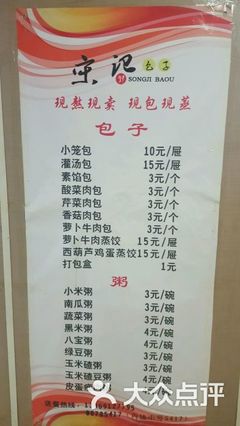 宋记包子
SONGJI BAOU
现熬现卖 现包现蒸
包子
小笼包 10元/屉
灌汤包 15元/屉
素馅包 3元/个
酸菜肉包 3元/个
芹菜肉包 3元/个
香菇肉包 3元/个
萝卜牛肉包 3元/个
萝卜牛肉蒸饺 15元/屉
西葫芦鸡蛋蒸饺15元/屉
打包盒 1元
粥
小米粥 3元/碗
南瓜粥 3元/碗
蔬菜粥 3元/碗
黑米粥 3元/碗
八宝粥 3元/碗
绿豆粥 3元/碗
玉米粥 3元/碗
玉米碴粥 4元/碗
皮蛋
大众点评